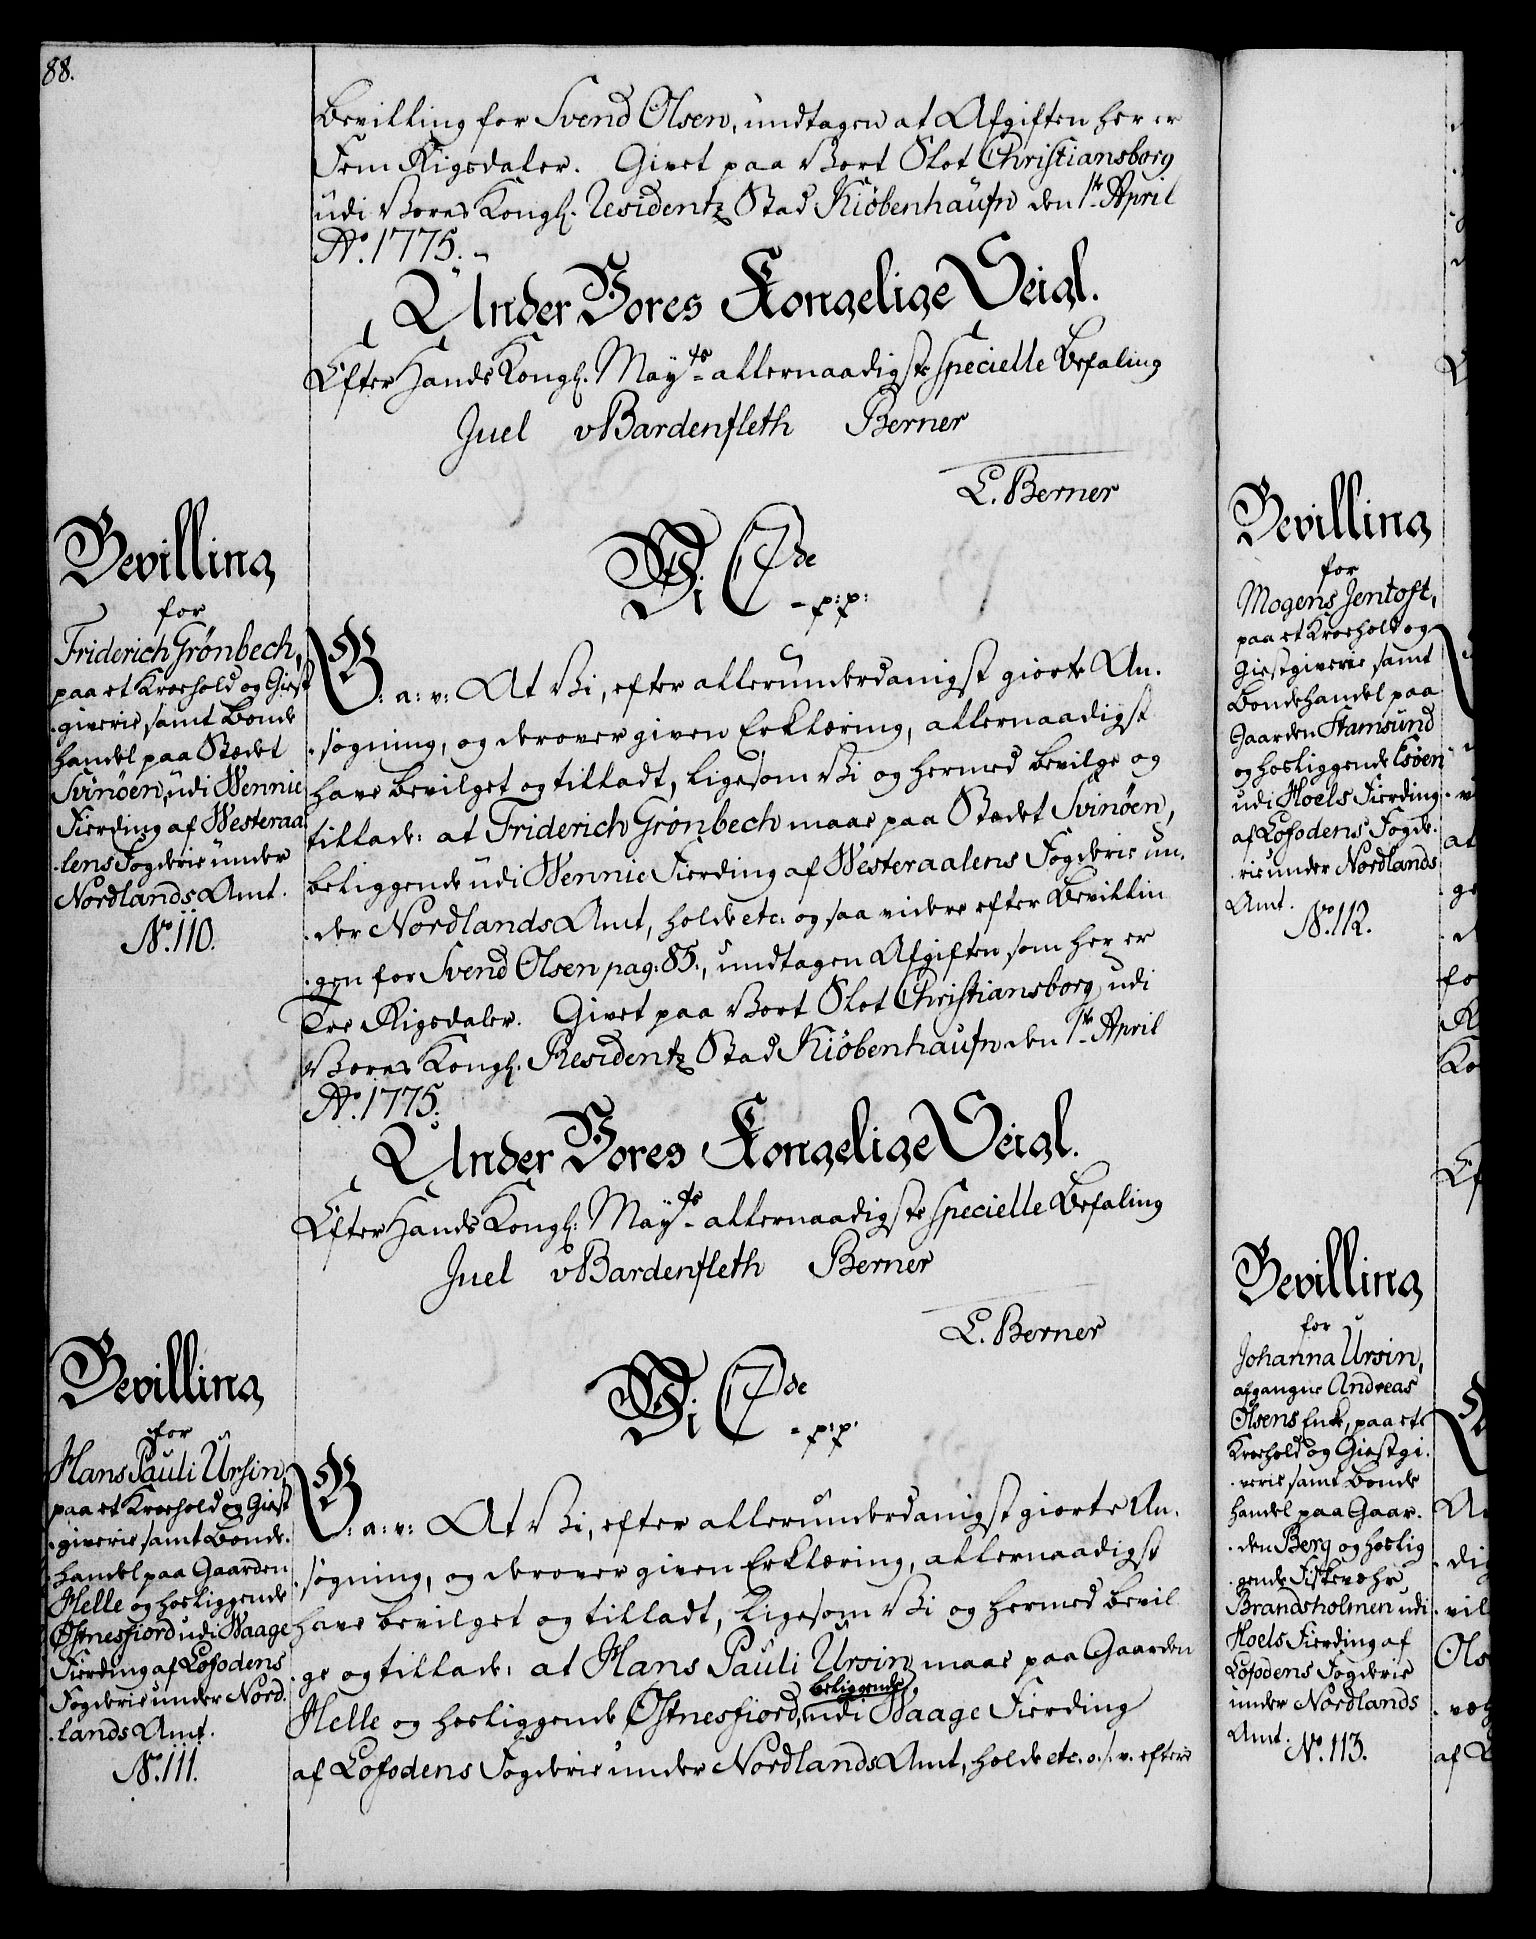 88.
Bevilling for Svend Olsen, undtagen at Afgiften her er
Fem Rigsdaler. Givet paa Vort Slot Christiansborg
udi Vores Kongl. Residentz Stad Kiöbenhaufn den 1te April
Ao. 1775.
Under Vores Kongelige Seigl.
Efter Hands Kongl. Mayts allernaadigste specielle Befaling
Juel vBardenfleth Berner
L. Berner
Bevilling
for
Friderich Grönbech,
paa et Kroehold og Giest
-giverie samt Bonde
handel paa Stædet
Svinöen, udi Wennie
Fierding af Westeraa
-lens Fogderie under
Nordlands Amt.
No. 110.
Vi C 7de
- p: p:
G: a: v: At Vi, efter allerunderdanigst giorte An-
-søgning, og derover given Erklæring, allernaadigst
have bevilget og tilladt, ligesom Vi og hermed bevilge og
tillade: at Friderich Grönbech maae paa Stædet Svinöen,
beliggende udi Wennie Fierding af Westeraalens Fogderie un-
-der Nordlands Amt, holde etc: og saa videre efter Bevillin
-gen for Svend Olsen pag: 85., undtagen Afgiften, som her er
Tre Rigsdaler. Givet paa Vort Slot Christiansborg udi
Vores Kongl. Residentz Stad Kiöbenhaufn den 1te April
Ao. 1775.
Under Vores Kongelige Seigl.
Efter Hands Kongl: Mayts allernaadigste specielle Befaling
Juel vBardenfleth Berner
L. Berner
Bevilling
for
Hans Pauli Ursin,
paa et Kroehold og Giest
-giverie samt Bonde-
-handel paa Gaarden
Helle og hosliggende
Östnesfiord udi Waage
Fierding af Lofodens
Fogderie under Nord-
-lands Amt.
No. 111.
Vi C 7de
- p: p:
G: a: v: At Vi, efter allerunderdanigst giorte An-
-søgning, og derover given Erklæring, allernaadigst
have bevilget og tilladt, ligesom Vi og hermed bevil
-ge og tillade: at Hans Pauli Ursin maae paa Gaarden
beliggende
Helle og hosliggende Östnesfiord, udi Waage Fierding
af Lofodens Fogderie under Nordlands Amt, holde etc. o. s. v. efter
Bevilling
for
Mogens Jentoft,
paa et Kroehold og
Giestgiverie samt
Bondehandel paa
Gaarden Stamsund
og hosliggende Esöen
udi Hoels Fierding
af Lofodens Fogde-
-rie under Nordlands
Amt.
No. 112.
Bevilling
for
Johanna Ursin,
afgangne Andreas
Olsens Enke, paa et
Kroehold og Giestgi-
-verie samt Bonde
handel paa Gaar-
-den Berg og hoslig
-gende Fiskevæhr
Brandsholmen udi
Hoels Fierding af
Lofodens Fogderie
under Nordlands
Amt.
No. 113.